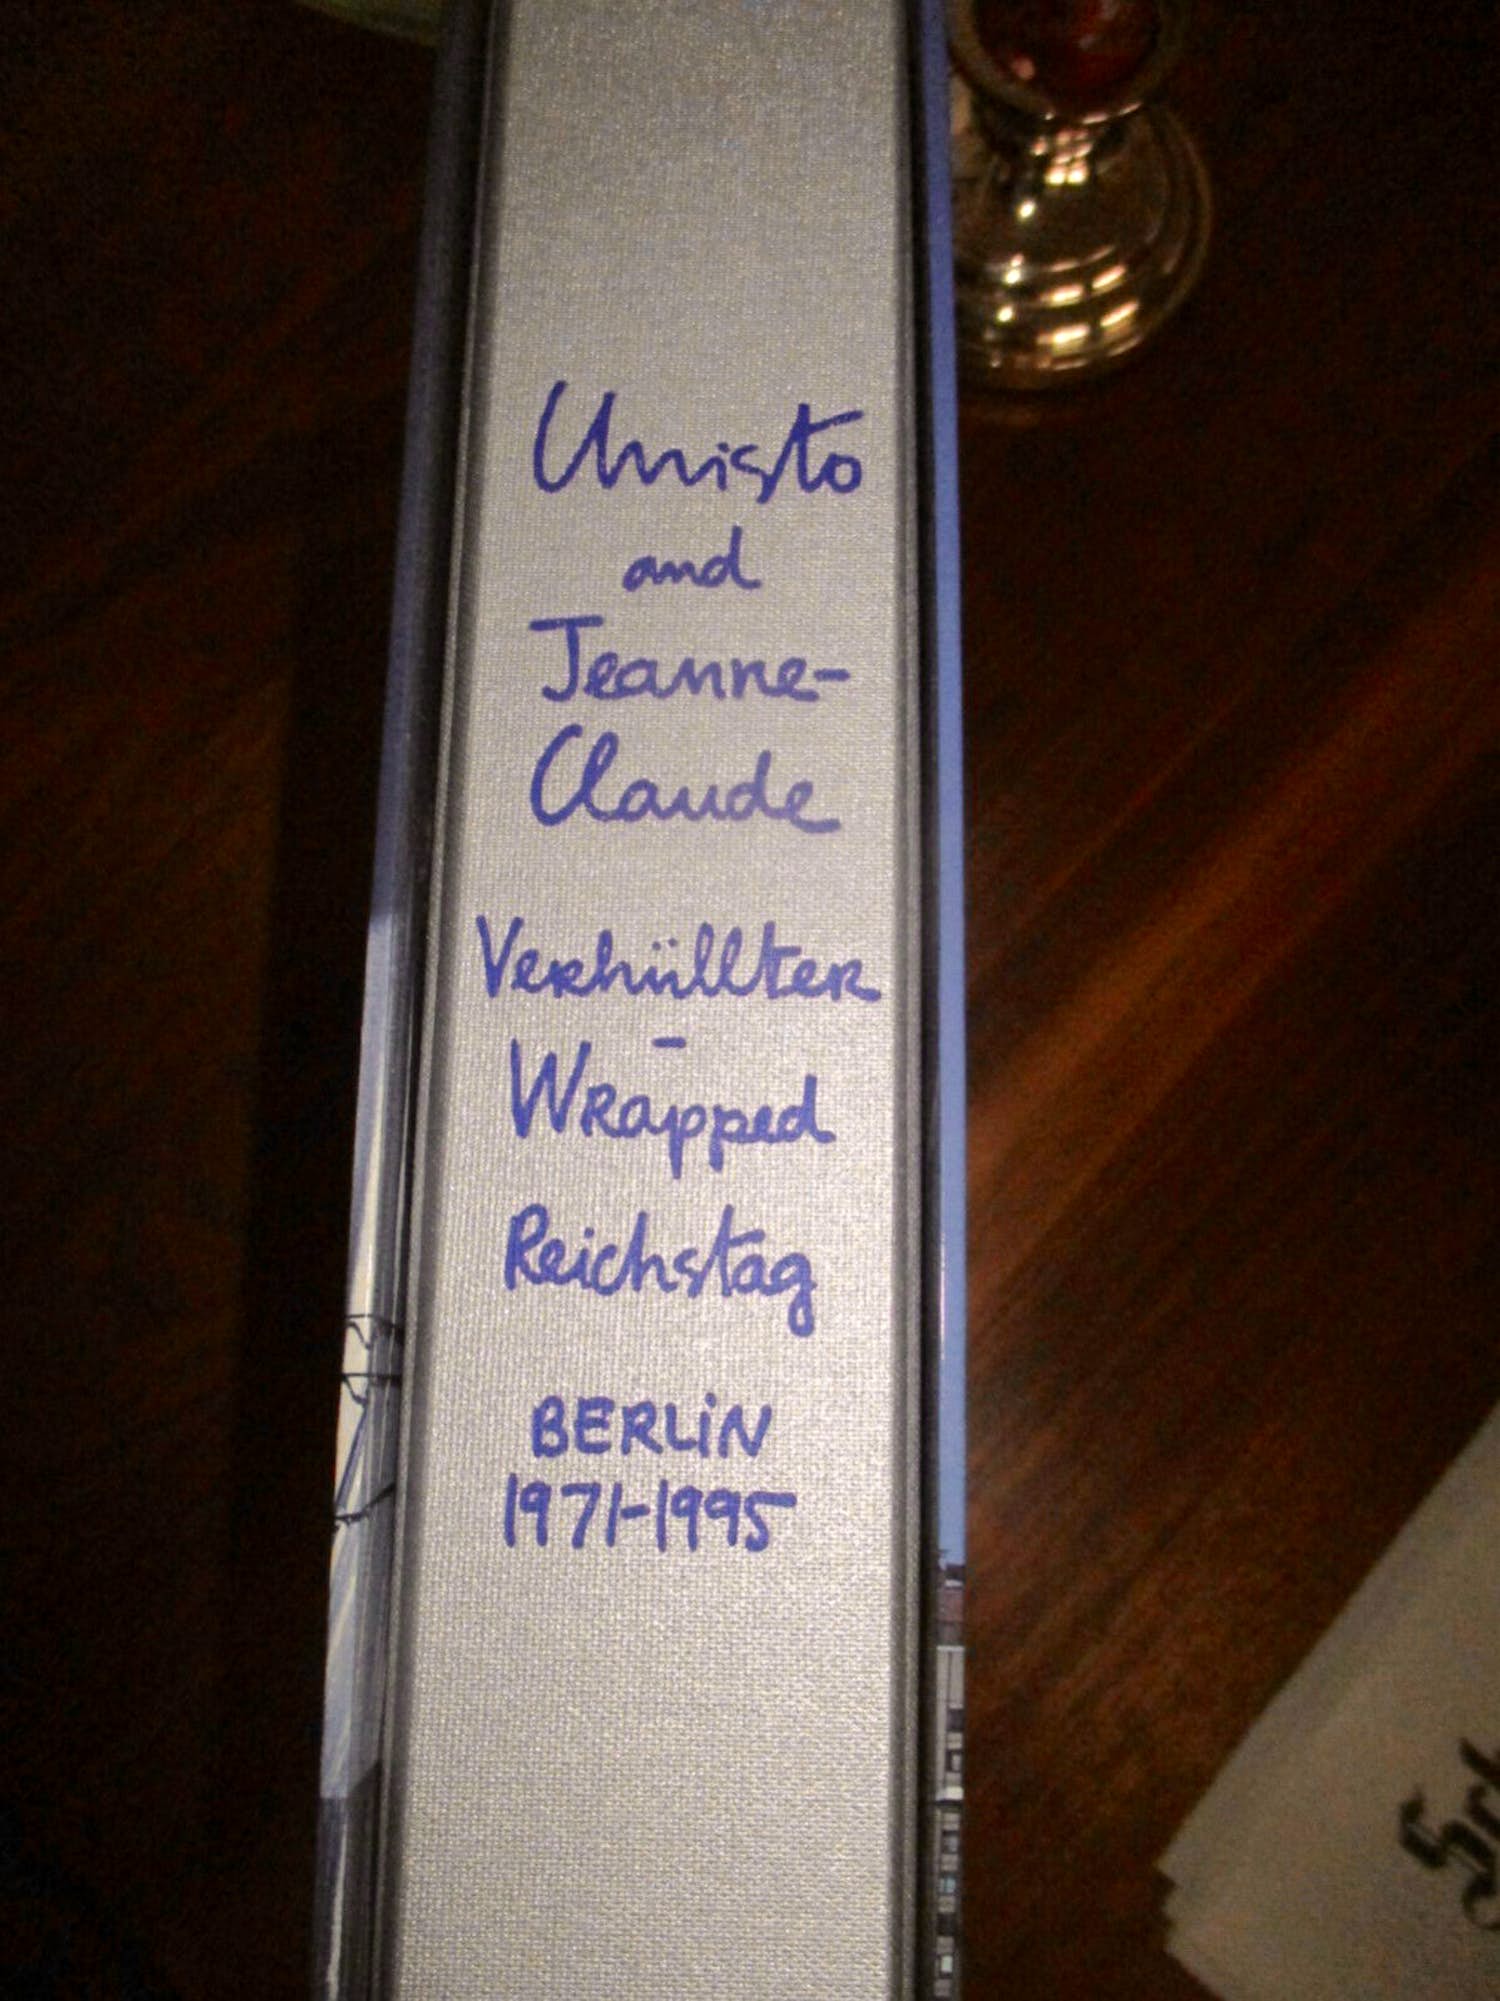 Christo
and
Jeanne-
Claude
Verhüllter
-
Wrapped
Reichstag
BERLiN
1971-1995